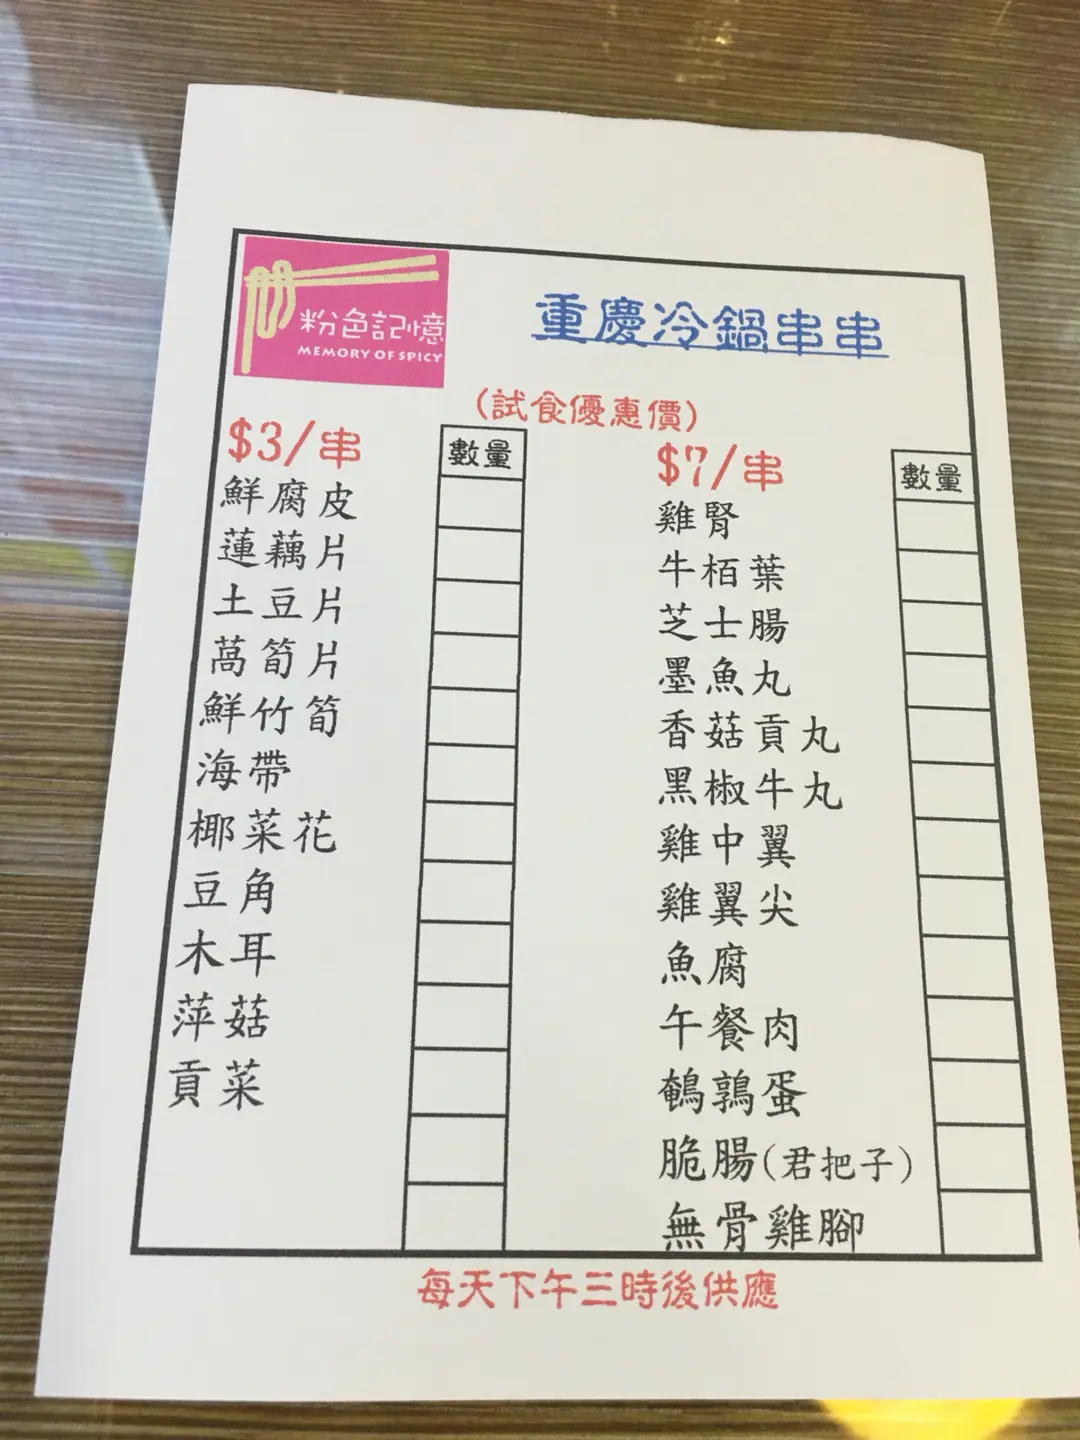 粉色記憶
MEMORY OF SPICY
重慶冷鍋串串
(試食優惠價)
$3/串
數量
鮮腐皮
蓮藕片
土豆片
萵筍片
鮮竹筍
海帶
椰菜花
豆角
木耳
萍菇
貢菜
$7/串
數量
雞腎
牛栢葉
芝士腸
墨魚丸
香菇貢丸
黑椒牛丸
雞中翼
雞翼尖
魚腐
午餐肉
鵪鶉蛋
脆腸(君把子)
無骨雞腳
每天下午三時後供應